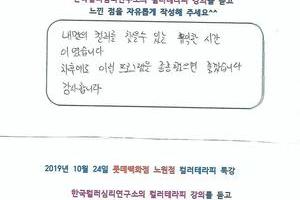 한국컬러심리연구소의 컬러테라피 강의를 듣고
느낀 점을 자유롭게 작성해 주세요^^
내면의 컬러를 찾을수 있는 시간
이였습니다
차후에도 이런 프로그램은 종종 있으면 좋겠습니다
감사합니다
2019년 10월 24일 롯데백화점 노원점 컬러테라피 특강
한국컬러심리연구소의 컬러테라피 강의를 듣고